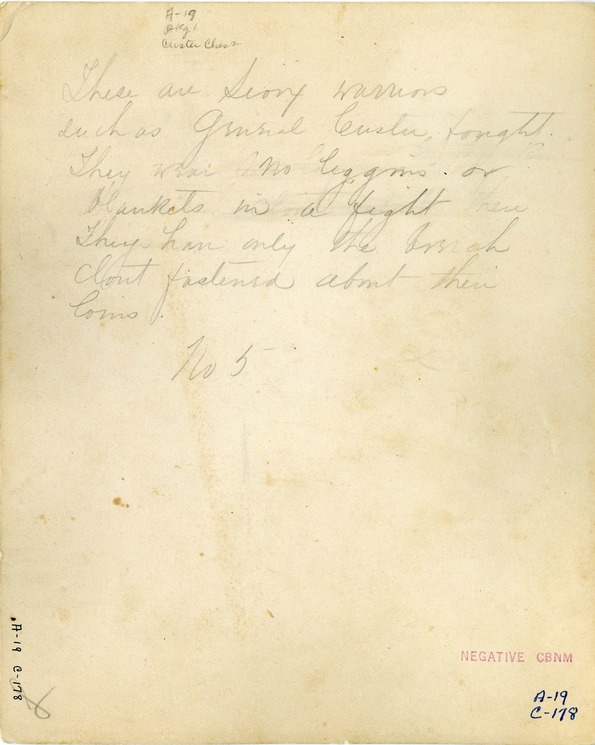 A-19
Pkg. 1
Custer Chest
These are Sioux warriors
such as General Custer fought.
They wear no leggins or
blankets in a fight
They han only the breech
clout fastened about their
loins.
No 5
NEGATIVE CBNM
A-19
C-178
A-19 C-178